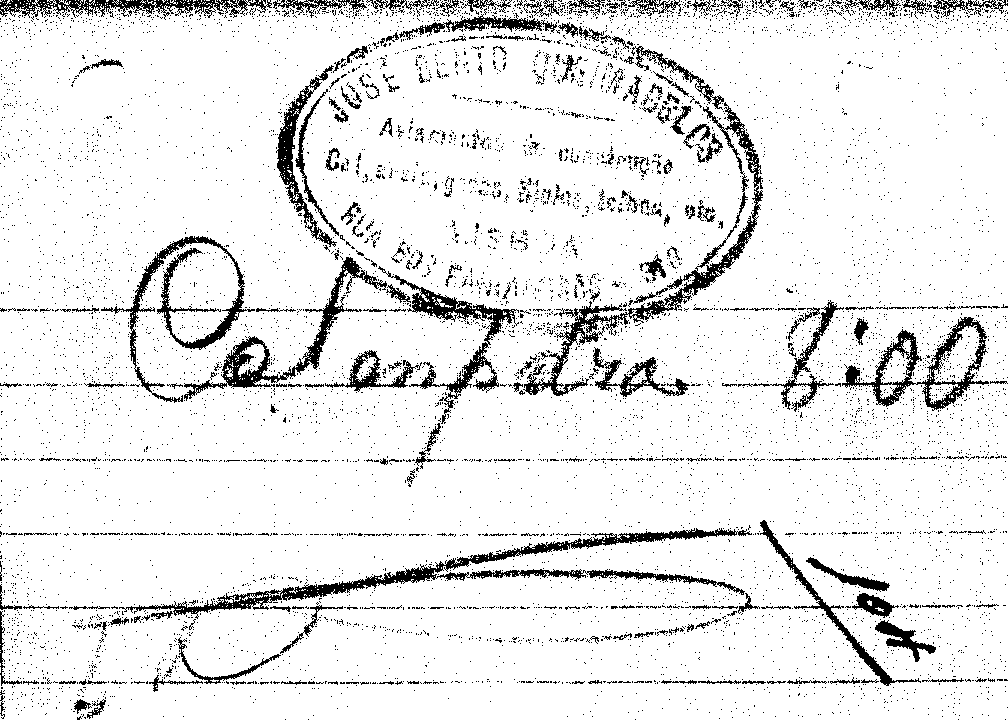 JOSÉ BENTO QUEIMADELOS
Aviamentos de construção
Cal, areia, gesso, tijolos, telhas, etc.
LISBOA
RUA DOS FANQUEIROS - 310
Cal em pedra. 8:00